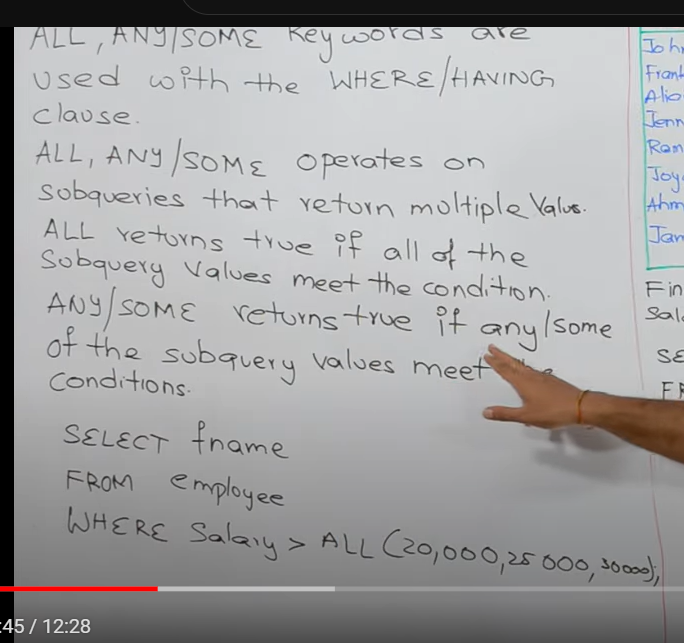 ALL, ANY/SOME keywords are
used with the WHERE/HAVING
clause.
ALL, ANY/SOME operates on
subqueries that return multiple Values.
ALL returns true if all of the
Subquery Values meet the condition.
ANY/SOME returns true if any/some
of the subquery values meet
conditions.
SELECT fname
FROM employee
WHERE Salary > ALL (20,000,25000,30000);
John
Frank
Alic
Jenn
Ram
Joy
Ahm
Jan
Fin
Sala
SE
FR
:45 / 12:28